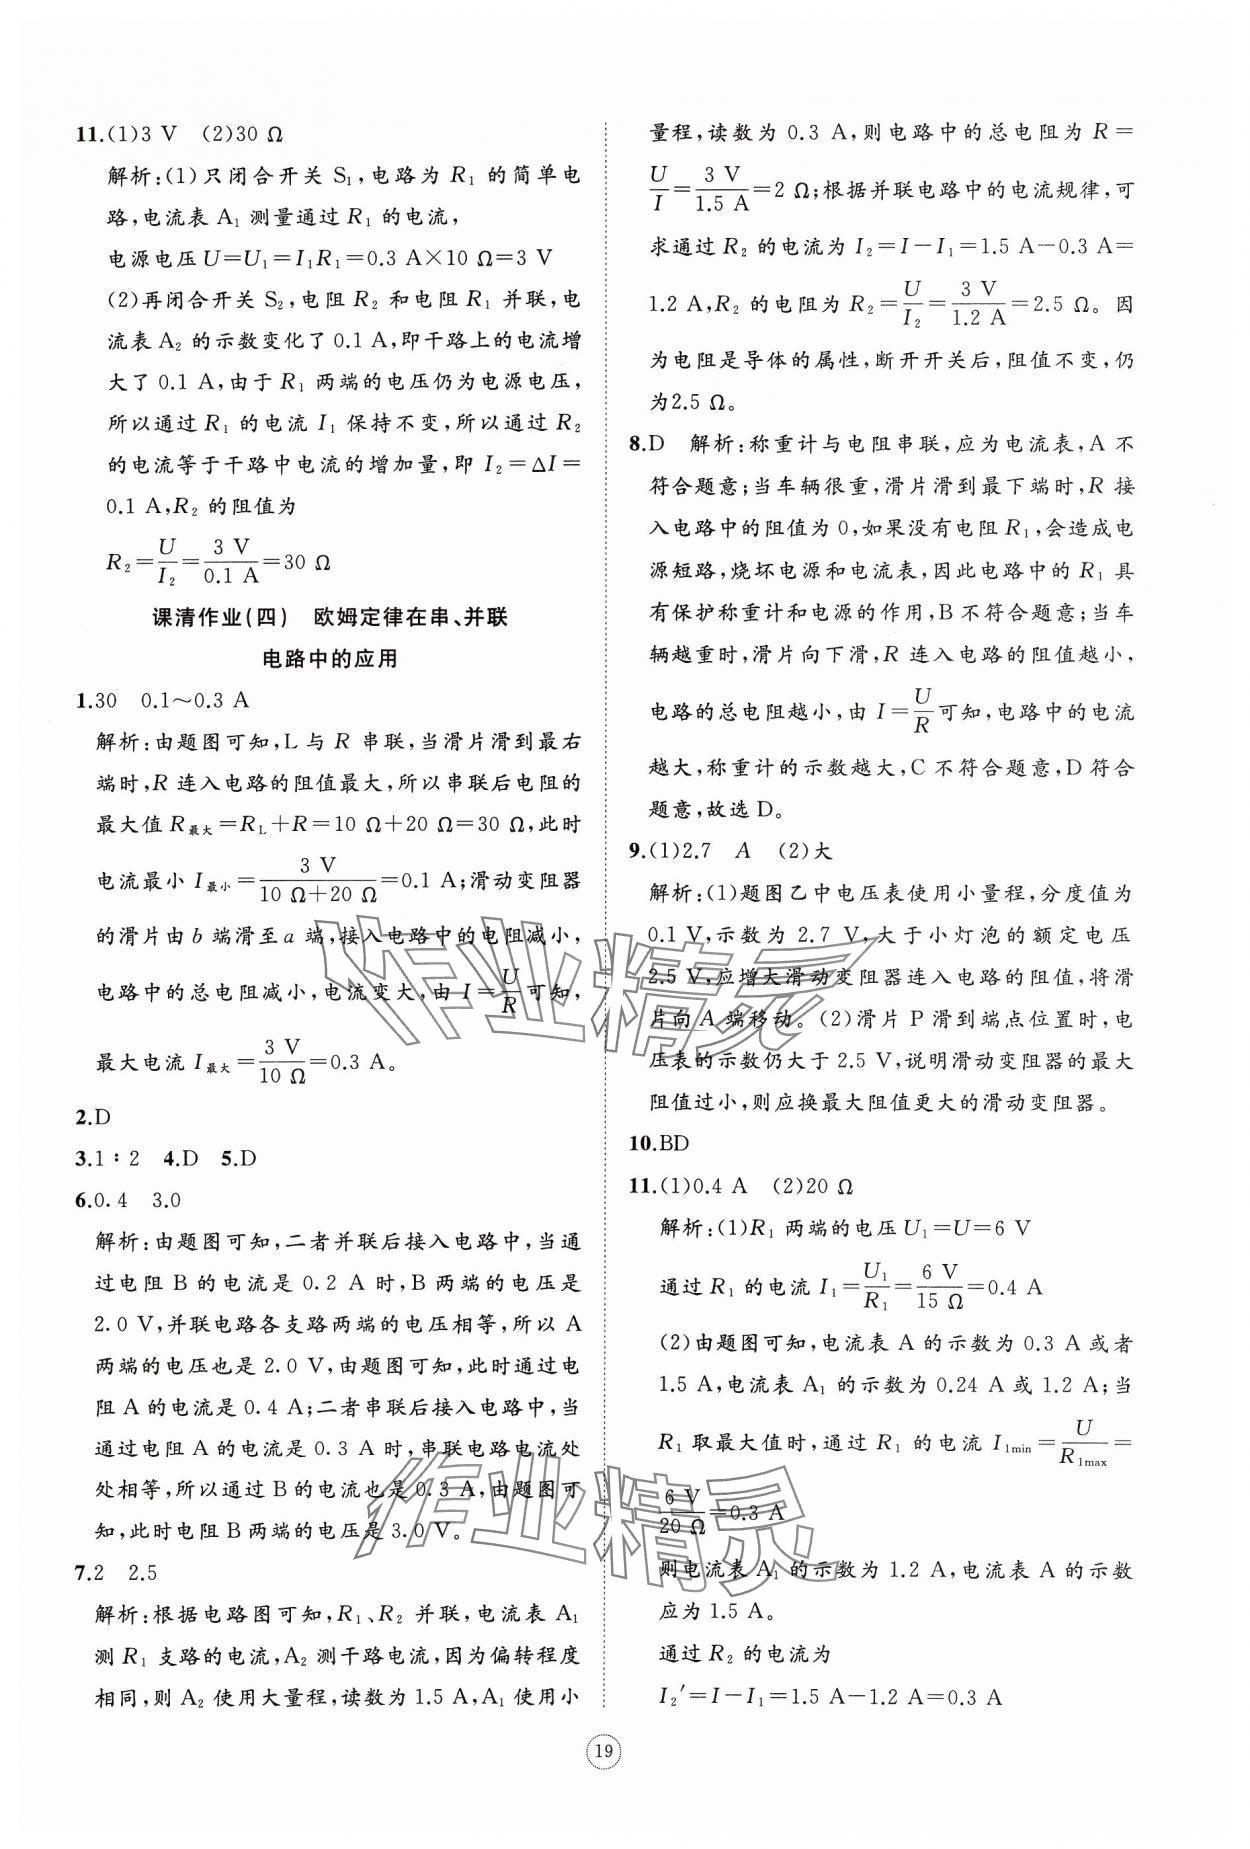 11.(1)3 V (2)30 Ω
解析:(1)只闭合开关 S₁,电路为 R₁ 的简单电
路,电流表 A₁ 测量通过 R₁ 的电流,
电源电压U=U₁=I₁R₁=0.3 A×10 Ω=3 V
(2)再闭合开关 S₂,电阻 R₂ 和电阻 R₁ 并联,电
流表 A₂ 的示数变化了 0.1 A,即干路上的电流增
大了 0.1 A,由于 R₁ 两端的电压仍为电源电压,
所以通过 R₁ 的电流 I₁ 保持不变,所以通过 R₂
的电流等于干路中电流的增加量,即 I₂=ΔI=
0.1 A,R₂ 的阻值为
R₂=U/I₂=3 V/0.1 A=30 Ω
课清作业(四) 欧姆定律在串、并联
电路中的应用
1.30 0.1～0.3 A
解析:由题图可知,L 与 R 串联,当滑片滑到最右
端时,R 连入电路的阻值最大,所以串联后电阻的
最大值 R最大=R_L+R=10 Ω+20 Ω=30 Ω,此时
电流最小 I最小=3 V/(10 Ω+20 Ω)=0.1 A;滑动变阻器
的滑片由 b 端滑至a 端,接入电路中的电阻减小,
电路中的总电阻减小,电流变大,由 I=U/R可知,
最大电流 I最大=3 V/10 Ω=0.3 A。
2.D
3.1∶2 4.D 5.D
6.0.4 3.0
解析:由题图可知,二者并联后接入电路中,当通
过电阻 B 的电流是 0.2 A 时,B 两端的电压是
2.0 V,并联电路各支路两端的电压相等,所以 A
两端的电压也是 2.0 V,由题图可知,此时通过电
阻 A 的电流是 0.4 A;二者串联后接入电路中,当
通过电阻 A 的电流是 0.3 A 时,串联电路电流处
处相等,所以通过 B 的电流也是 0.3 A,由题图可
知,此时电阻 B 两端的电压是 3.0 V。
7.2 2.5
解析:根据电路图可知,R₁、R₂ 并联,电流表 A₁
测 R₁ 支路的电流,A₂ 测干路电流,因为偏转程度
相同,则 A₂ 使用大量程,读数为 1.5 A,A₁ 使用小
量程,读数为 0.3 A,则电路中的总电阻为 R=
U/I=3 V/1.5 A=2 Ω;根据并联电路中的电流规律,可
求通过 R₂ 的电流为 I₂=I-I₁=1.5 A-0.3 A=
1.2 A,R₂ 的电阻为 R₂=U/I₂=3 V/1.2 A=2.5 Ω。因
为电阻是导体的属性,断开开关后,阻值不变,仍
为2.5 Ω。
8.D 解析:称重计与电阻串联,应为电流表,A 不
符合题意;当车辆很重,滑片滑到最下端时,R 接
入电路中的阻值为 0,如果没有电阻 R₁,会造成电
源短路,烧坏电源和电流表,因此电路中的 R₁ 具
有保护称重计和电源的作用,B 不符合题意;当车
辆越重时,滑片向下滑,R 连入电路的阻值越小,
电路的总电阻越小,由 I=U/R可知,电路中的电流
越大,称重计的示数越大,C 不符合题意,D 符合
题意,故选 D。
9.(1)2.7 A (2)大
解析:(1)题图乙中电压表使用小量程,分度值为
0.1 V,示数为 2.7 V,大于小灯泡的额定电压
2.5 V,应增大滑动变阻器连入电路的阻值,将滑
片向 A 端移动。(2)滑片 P 滑到端点位置时,电
压表的示数仍大于 2.5 V,说明滑动变阻器的最大
阻值过小,则应换最大阻值更大的滑动变阻器。
10.BD
11.(1)0.4 A (2)20 Ω
解析:(1)R₁ 两端的电压 U₁=U=6 V
通过 R₁ 的电流 I₁=U₁/R₁=6 V/15 Ω=0.4 A
(2)由题图可知,电流表 A 的示数为 0.3 A 或者
1.5 A,电流表 A₁ 的示数为 0.24 A 或 1.2 A;当
R₁ 取最大值时,通过 R₁ 的电流 I₁min=U/R₁max=
6 V/20 Ω=0.3 A
则电流表 A₁ 的示数为 1.2 A,电流表 A 的示数
应为 1.5 A。
通过 R₂ 的电流为
I₂′=I-I₁=1.5 A-1.2 A=0.3 A
19
作业精灵
作业精灵